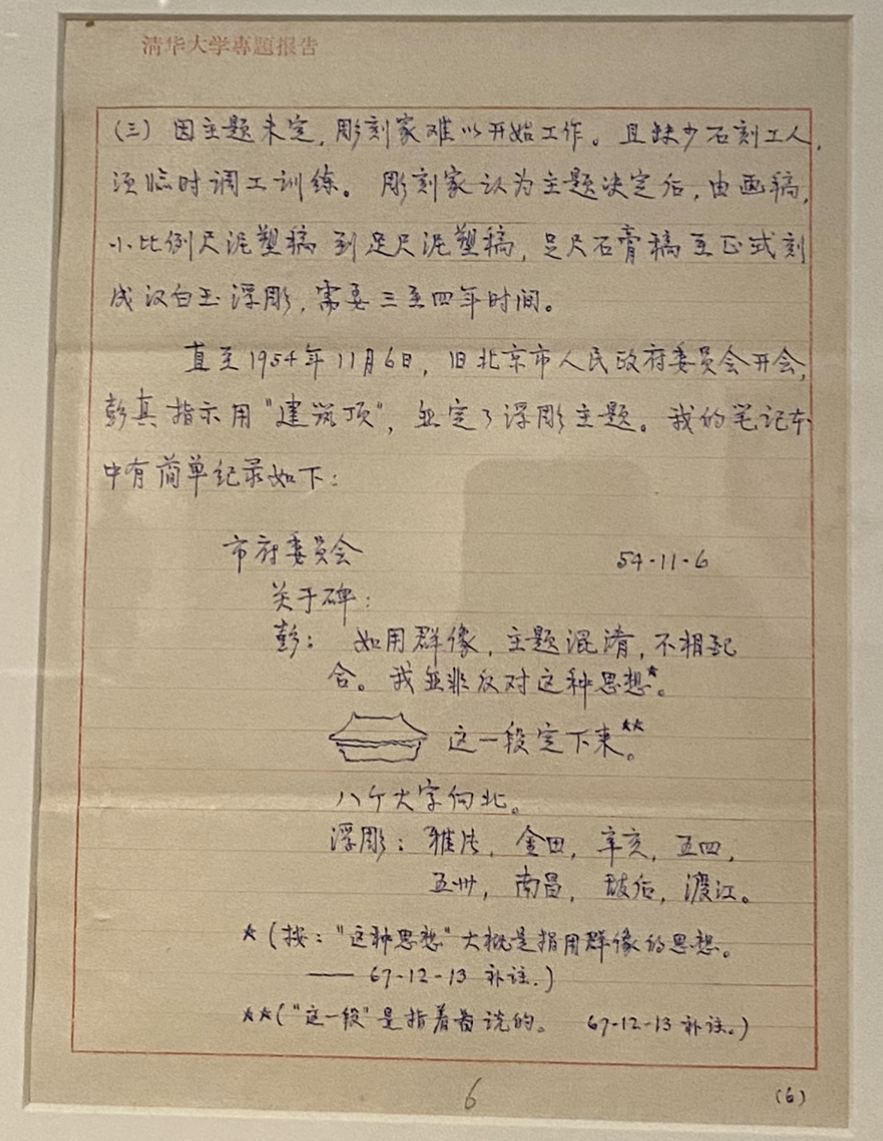 清华大学專題报告
(三) 因主题未定,彫刻家难以开始工作。且缺少石刻工人,
须临时调工训练。彫刻家认为主题决定后,由画稿,
小比例尺泥塑稿到足尺泥塑稿,足尺石膏稿至正式刻
成汉白玉浮彫,需要三至四年时间。
直至1954年11月6日,旧北京市人民政府委员会开会,
彭真指示用"建筑顶",並定了浮彫主题。我的笔记本
中有简单纪录如下:
市府委员会 54-11-6
关于碑:
彭: 如用群像,主题混淆,不相配
合。我並非反对这种思想*。
这一段定下来**。
八个大字向北。
浮彫:雅片,金田,辛亥,五四,
五卅,南昌,敌后,渡江。
★(按:"这种思想"大概是指用群像的思想。
—— 67-12-13 补注.)
★★("这一段"是指着着说的。 67-12-13 补注。)
6
(6)